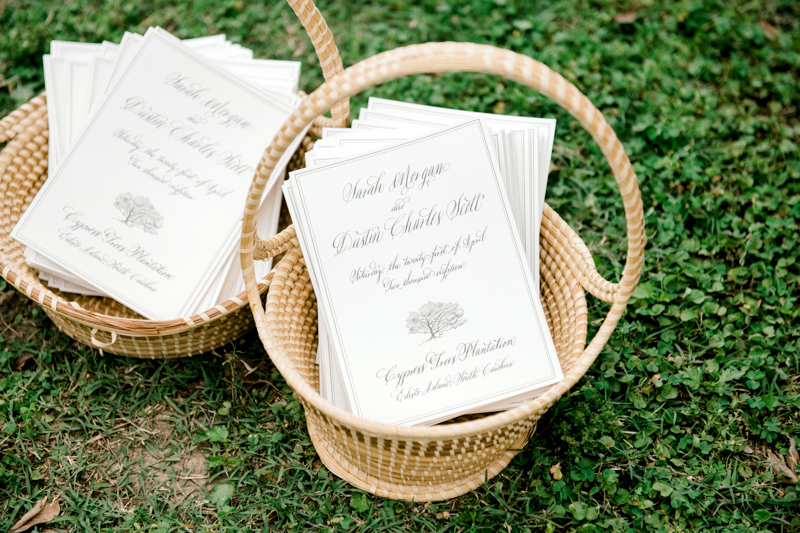 Sarah Morgan
and
Dustin Charles Stitt
Saturday, the twenty-first of April
Two thousand eighteen
Cypress Trees Plantation
Edisto Island, South Carolina
Sarah Morgan
and
Dustin Charles Stitt
Saturday, the twenty-first of April
Two thousand eighteen
Cypress Trees Plantation
Edisto Island, South Carolina